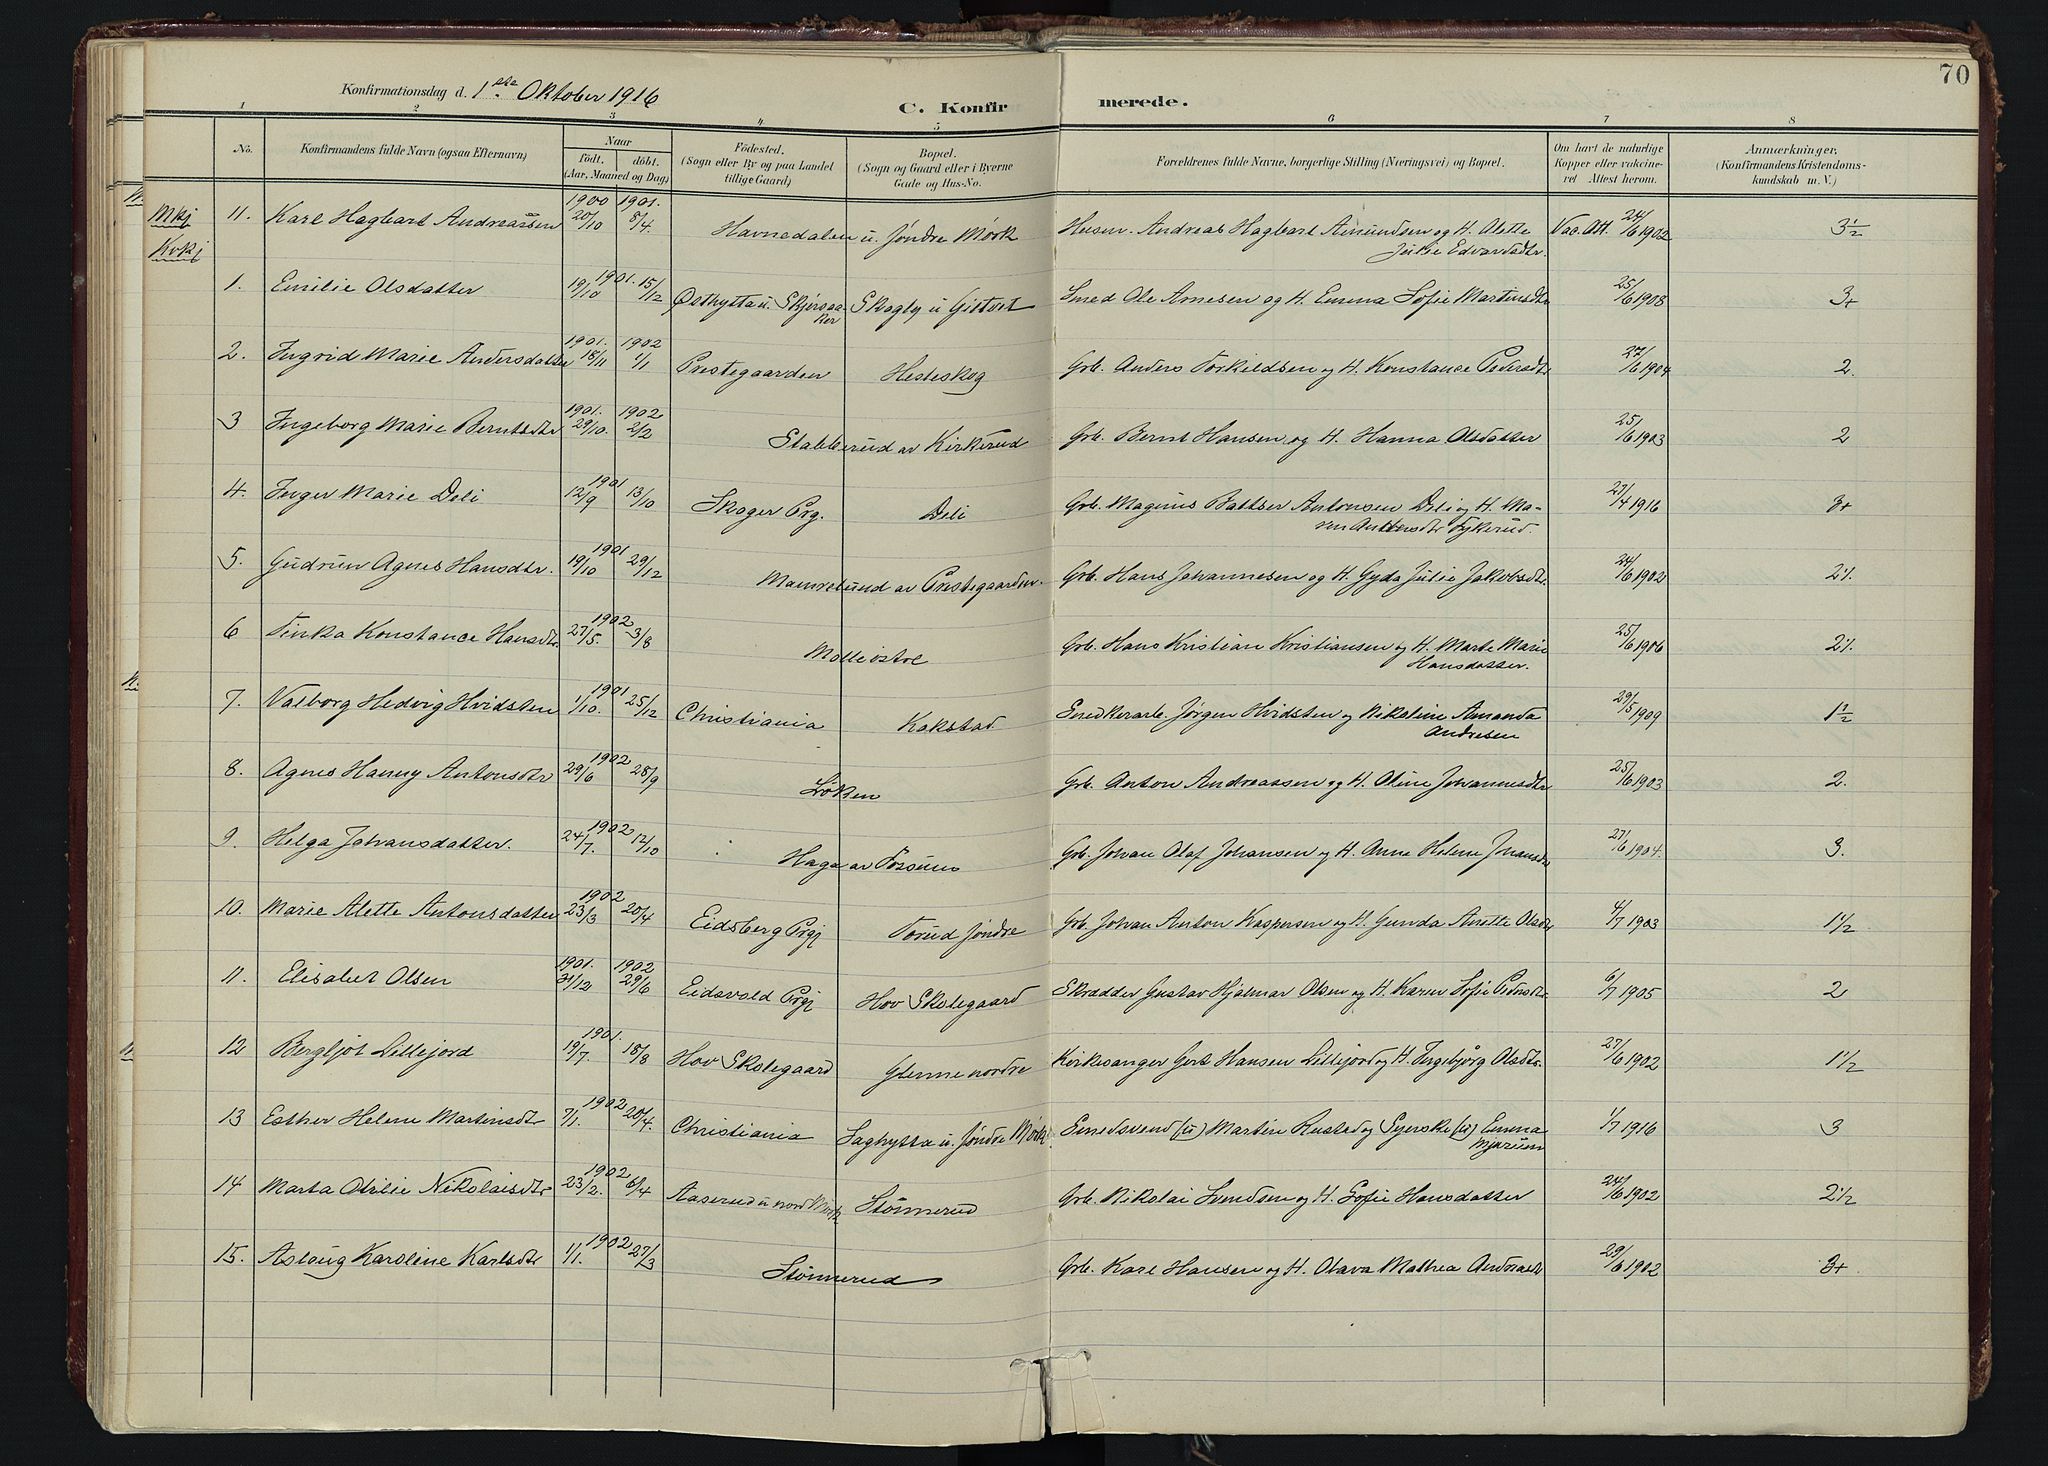 70
Konfirmationsdag d. 1ste Oktober 1916
C. Konfir merede.
1 2 3 4 5 6 7 8
No. Konfirmandens fulde Navn (ogsaa Efternavn) Naar födt. döbt. (Aar, Maaned og Dag) Födested. (Sogn eller By og paa Landet tillige Gaard) Bopæl. (Sogn og Gaard eller i Byerne Gade og Hus-No. Forældrenes fulde Navne, borgerlige Stilling (Næringsvei) og Bopæl. Om havt de naturlige Kopper eller vakcineret Attest herom. Anmærkninger. (Konfirmandens Kristendomskundskab m. V.)
Mkj
11. Karl Hagbart Andreassen 1900 20/10 1901. 8/4. Havnedalen u. Jøndre Mørk Husm. Andreas Hagbart Amundsen og H. Alette Julie Edvardsdtr. Vac. Att. 24/6 1902 3 1/2
Kvkj
1. Emilie Olsdatter 1901. 19/10 15/12 Østhytta u. Skjersaaker Skogly u Gistvet Smed Ole Arnesen og H. Emma Sofie Martinsdtr 25/6 1908 3+
2. Ingrid Marie Andersdatter 1901. 18/11 1902 1/1 Prestegaarden Hesteskog Grb. Anders Torkildsen og H. Konstance Pedersdtr 27/6 1904 2.
3 Ingeborg Marie Berntsdtr 1901. 29/10. 1902 2/2 Stabberud av Kirkerud Grb. Bernt Hansen og H. Hanna Olsdatter 25/6 1903 2
4. Inger Marie Deli 1901 12/9 13/10 Skoger Prg. Deli Grb. Magnus Baltser Antonsen Deli og H. Maren Antonsdtr Fykerud. 27/4 1916 3+
5. Gudrun Agnes Hansdtr. 1901 19/10 29/12 Mamrelund av Prestegaarden. Grb. Hans Johannesen og H. Gyda Julie Jakobsdtr. 24/6 1902 2 1/2
6 Tinka Konstance Hansdtr. 1902 27/5. 3/8 Molle østre Grb. Hans Kristian Kristiansen og H. Marte Marie Hansdatter. 25/6 1906 2 1/2
7. Valborg Hedvig Hvidsten 1901 1/10. 25/12 Christiania Kakstad Snedkerarb. Jørgen Hvidsten og Nikoline Amanda Andresen 29/5 1909 1 1/2
8. Agnes Hanny Antonsdtr 1902 29/6 28/9 Løken Grb. Anton Andreassen og H. Oline Johannesdtr 25/6 1903 2.
9. Helga Johansdatter. 1902 24/7. 12/10 Haga av Fossum Grb. Johan Olaf Johansen og H. Anne Helene Jonansdtr 27/6 1904. 3.
10. Marie Alette Antonsdatter 1902 23/3 20/4 Eidsberg Prgj Torud Jøndre Grb. Johan Anton Kaspersen og H. Gunda Anette Olsdtr 4/7 1903 1 1/2
11. Elisabet Olsen 1901. 31/12 1902 29/6 Eidsvold Prgj Hov Skolegaard Skrædder Gustav Hjalmar Olsen og H. Karen Sofie Pedersdtr 6/7 1905 2
12 Bergljot Lillejord 1901. 19/7. 18/8 Hov Skolegaard Glenne nordre Kirkesanger Gert Hansen Lillejord og H. Ingebjørg Olsdtr. 27/6 1902 1 1/2
13 Esther Helene Martinsdtr 1902 7/1. 20/4. Christiania Saghytta u. Jøndre Mørk Smedsvend (u) Martin Rustad og Syerske (u) Emma Mjærum 1/7 1916 3
14 Marta Otilie Nikolaisdtr 1902 23/2. 6/4 Aaserud u nord Mørk Stønnerud Grb. Nikolai Svendsen og H. Sofie Hansdatter 24/6 1902 2 1/2
15. Aslaug Karoline Karlsdtr 1902 1/1. 27/3 Stønnerud Grb. Karl Hansen og H. Olava Mathea Andreasdtr 29/6 1902 3+